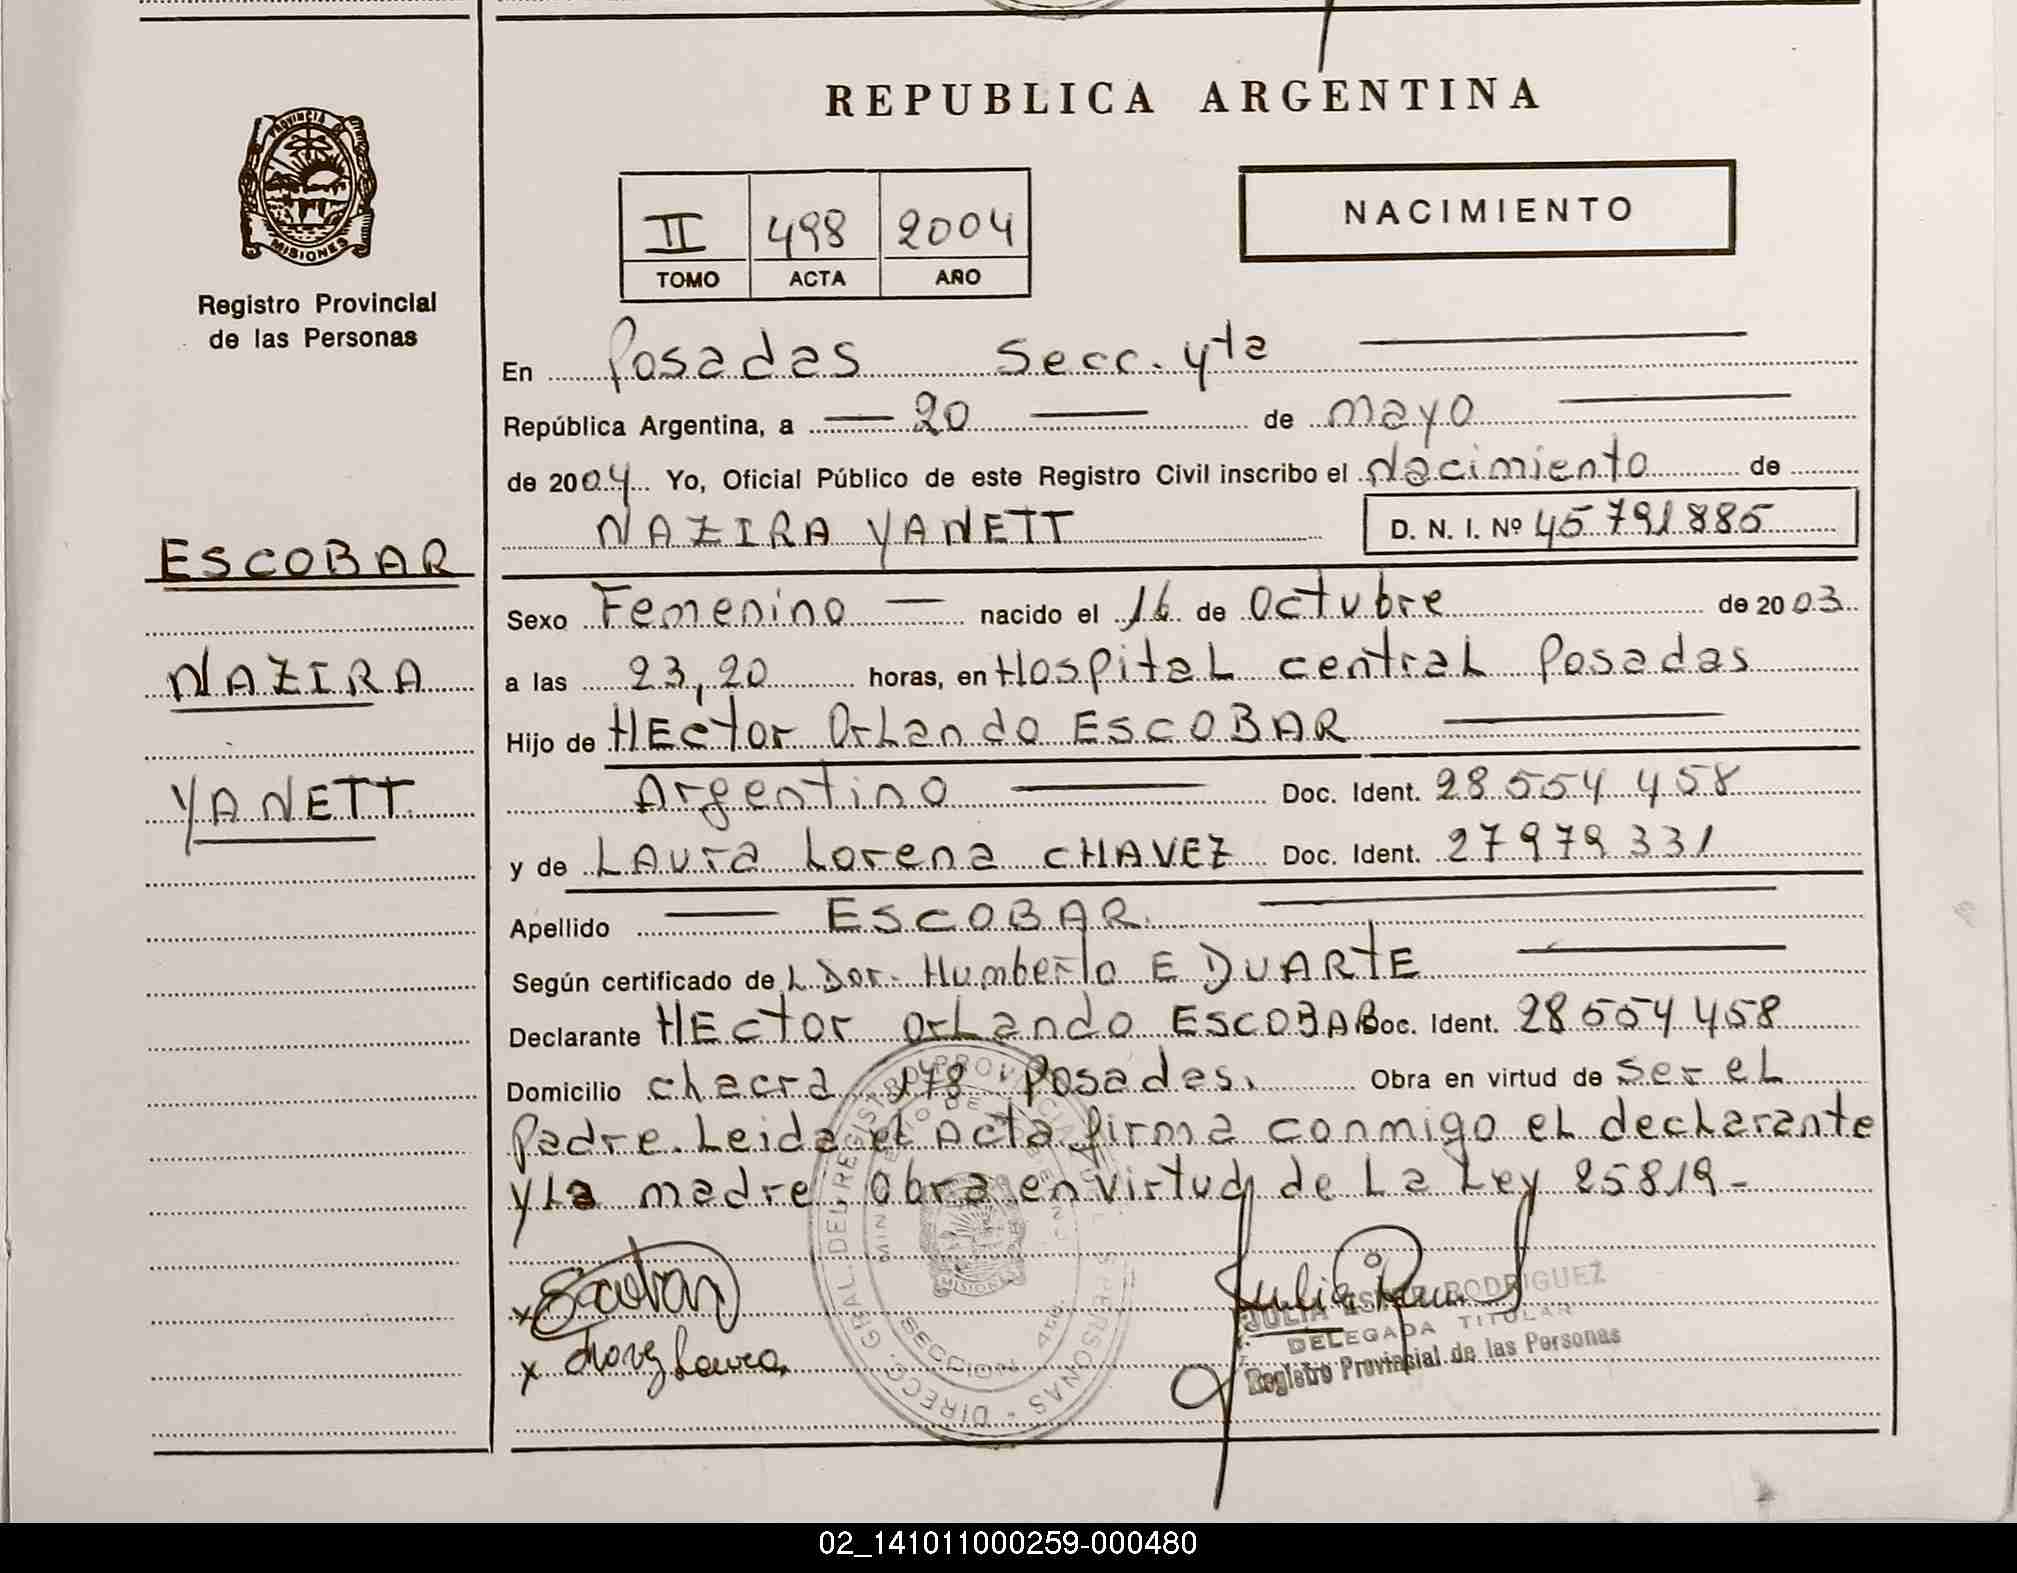 REPUBLICA ARGENTINA
PROVINCIA DE
MISIONES
Registro Provincial
de las Personas
II 498 2004
TOMO ACTA AÑO
NACIMIENTO
En Posadas Secc. 4ta
República Argentina, a 20 de mayo
de 2004 Yo, Oficial Público de este Registro Civil inscribo el Nacimiento de
NAZIRA YANETT D. N. I. Nº 45 791885
ESCOBAR
NAZIRA
YANETT
Sexo Femenino nacido el 16 de Octubre de 2003
a las 23,20 horas, en Hospital central Posadas
Hijo de HEctor Orlando ESCOBAR
Argentino Doc. Ident. 28 554 458
y de LAura Lorena CHAVEZ Doc. Ident. 27979 331
Apellido ESCOBAR
Según certificado de L Dor. Humberto E DUARTE
Declarante HEctor orlando ESCOBAR Doc. Ident. 28 554 458
Domicilio chacra 178 Posadas. Obra en virtud de Ser el
Padre. Leida el Acta firma conmigo el declarante
y la madre. Obra en virtud de la Ley 25819-
x Escobar
x Laura
JULIA RODRIGUEZ
DELEGADA TITULAR
Registro Provincial de las Personas
DIRECC. GRAL. DEL REGISTRO PROVINCIAL PERSONAS
SECCION 4ta.
02_141011000259-000480